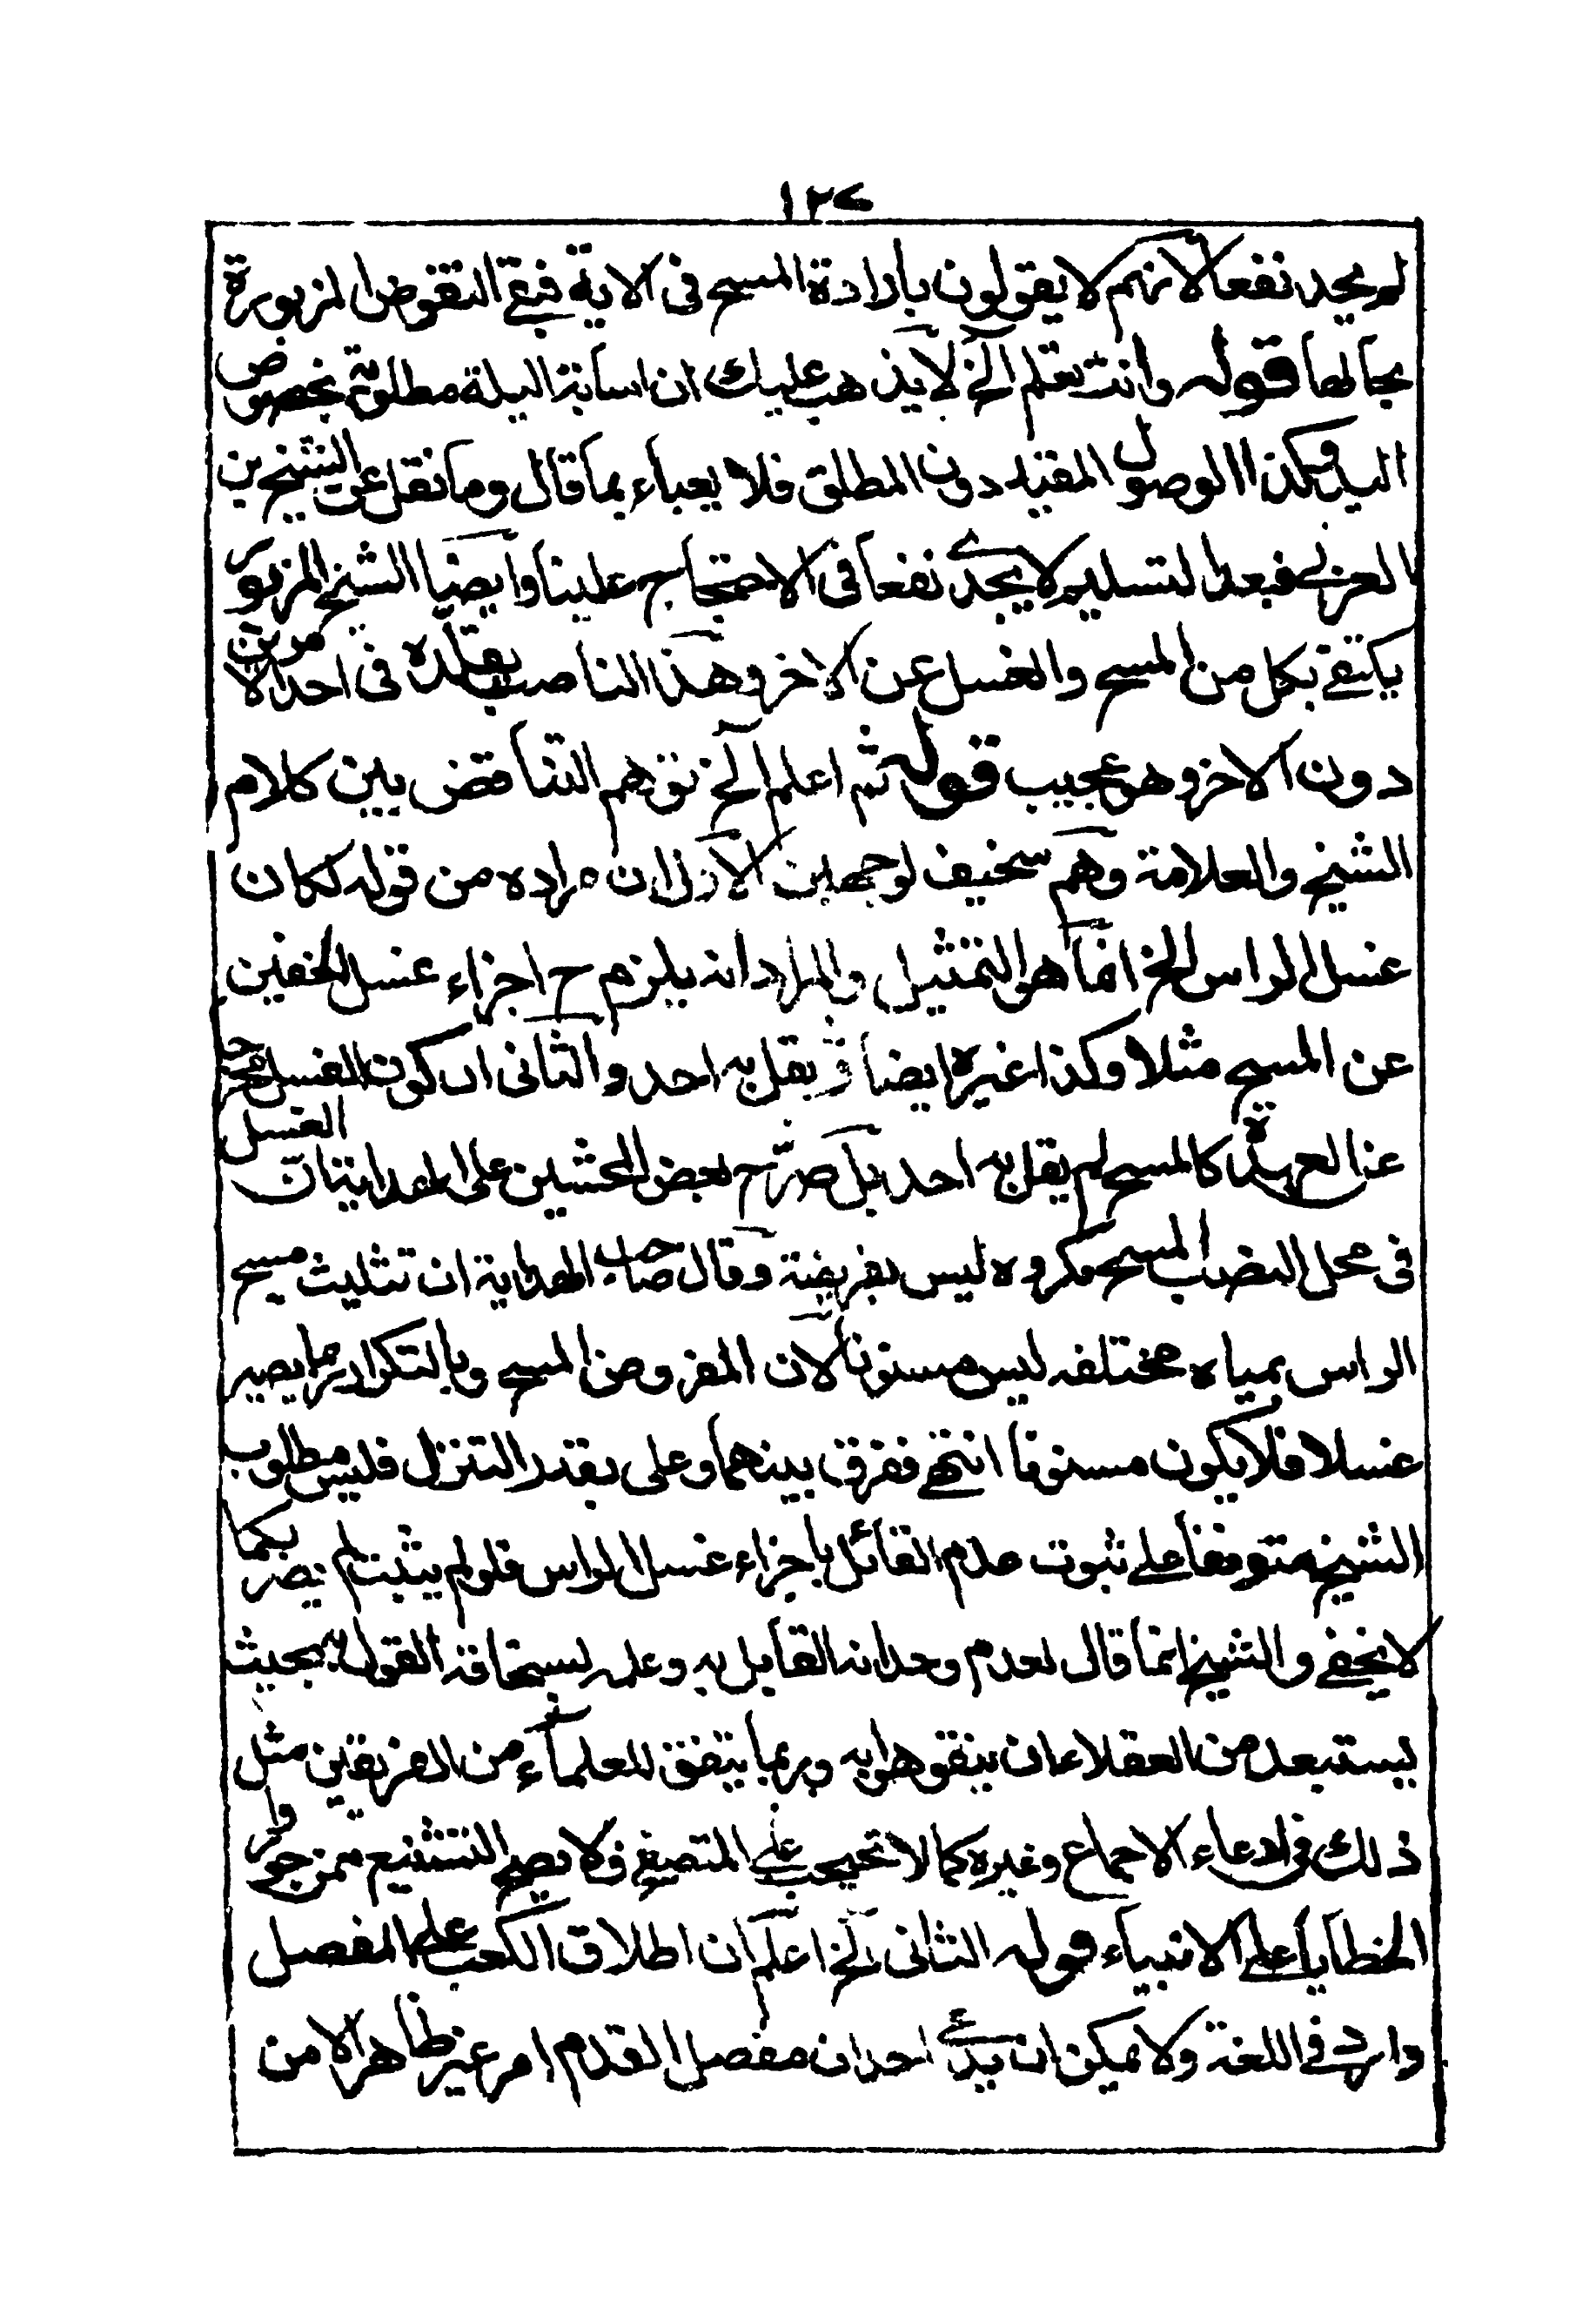 ١٢٧
لم يجد نفعا لانهم لا يقولون بارادة المسح فى الاية فبقى النقوض المزبورة
بحالها قوله وانت تعلم الخ لا يذهب عليك ان اسانة البلة مطلوبة بخصوص
اليد وكذا الوصول المقيد دون المطلق فلا يعباء بما قال وما نقل عن الشيخ بن
العربى فبعد التسليم لا يجدى نفعا فى الاحتجاج علينا وايضا الشيخ المزبور
يكتفى بكل من المسح والغسل عن الاخر وهذا الناصب يقلده فى احد الامرين
دون الاخر وهو عجيب قوله ثم اعلم الخ توهم التناقض بين كلام
الشيخ والعلامة وهم سخيف لوجهين الاول ان مراده من قوله لكان
غسل الراس الخ انما هو التمثيل والمراد انه يلزم ح اجزاء غسل الخفين
عن المسح مثلا وكذا غيره ايضا و يقل به احد والثانى ان كون الغسل مخرجا
عن العهدة كالمسح لم يقل به احد بل صرّح بعض المحشين على الهداية بان الغسل
فى محل النصاب المسح مكروه ليس بفريضة وقال صاحب الهداية ان تثليث مسح
الراس بمياه مختلفه ليس مسنونا لان المفروض المسح وبالتكرار ربما يصير
غسلا فلا يكون مسنونا انتهى ففرق بينهما وعلى تقدير التنزل فليس مطلوب
الشيخ متوقفا على ثبوت عدم القائل باجزاء غسل الراس فلو لم يثبت لم يضر كما
لا يخفى والشيخ انما قال لعدم وجدانه القايل به وعلمه بسخافة القول به بحيث
يستبعد من العقلاء ان يتفوهوا به وربما يتفق للعلماء من الفريقين مثل
ذلك فى ادعاء الاجماع وغيره كما لا تحيجب على المتصفح ولا يصح التشنيع ممن جوز
الخطايا على الانبياء قوله الثانى الخ اعلم ان اطلاق الكعب على المفصل
وارد فى اللغة ولا يمكن ان يدعى احد ان مفصل القدم امر غير ظاهر الا من